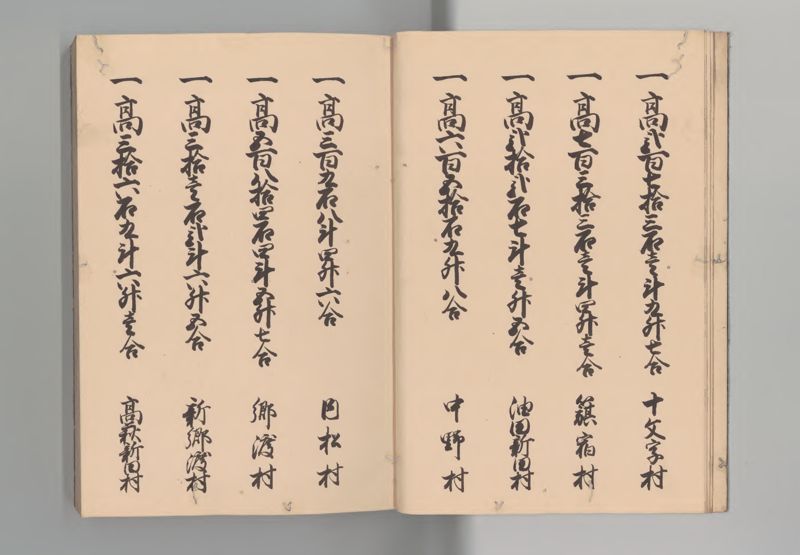 一高弐百七拾三石壱斗九升七合 十文字村
一高七百三拾三石壱斗四升壱合 簱宿村
一高弐拾弐石七斗壱升五合 油田新田村
一高六百五拾石九升八合 中野村
一高三百九石八斗四升六合 円松村
一高五百八拾四石四斗五升七合 郷渡村
一高三拾壱石弐斗六升五合 新郷渡村
一高三拾六石九斗六升壱合 高萩新田村